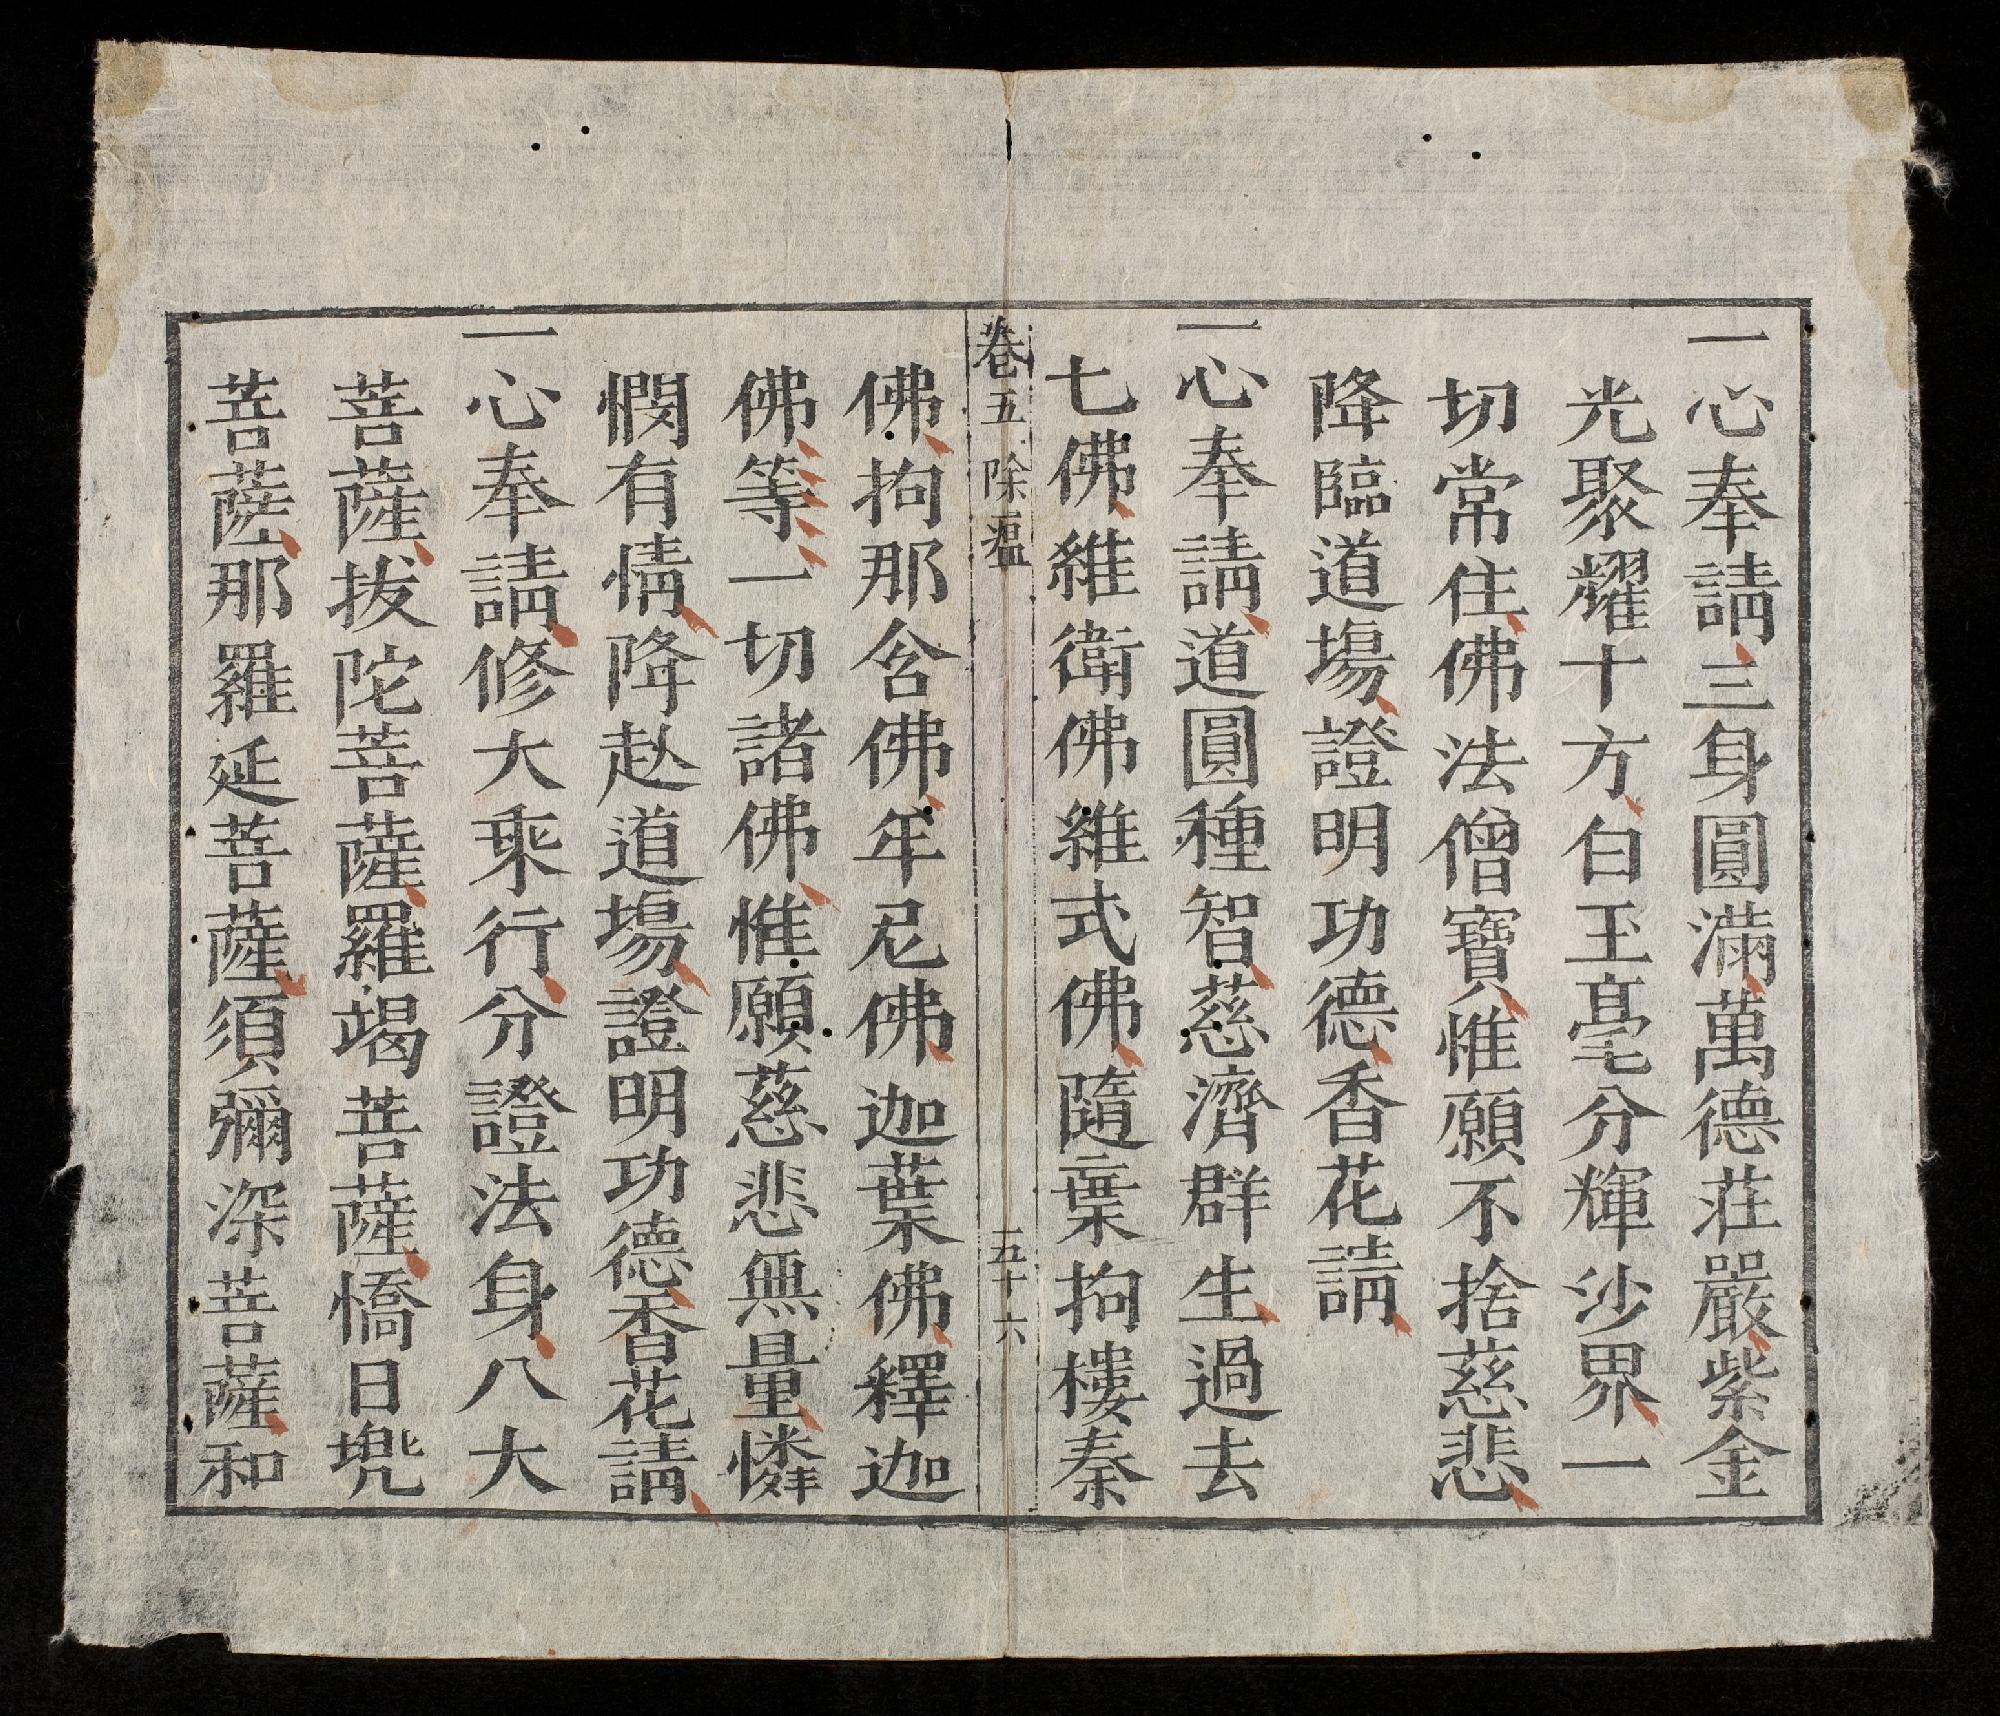 一心奉請三身圓滿萬德莊嚴紫金
光聚耀十方白玉毫分輝沙界一
切常住佛法僧寶惟願不捨慈悲
降臨道場證明功德香花請
一心奉請道圓種智慈濟群生過去
七佛維衛佛維式佛隨葉拘樓秦
卷五 除瘟 五十六
佛拘那含佛年尼佛迦葉佛釋迦
佛等一切諸佛惟願慈悲無量憐
憫有情降赴道場證明功德香花請
一心奉請修大乘行分證法身八大
菩薩拔陀菩薩羅竭菩薩憍日兠
菩薩那羅延菩薩須彌深菩薩和